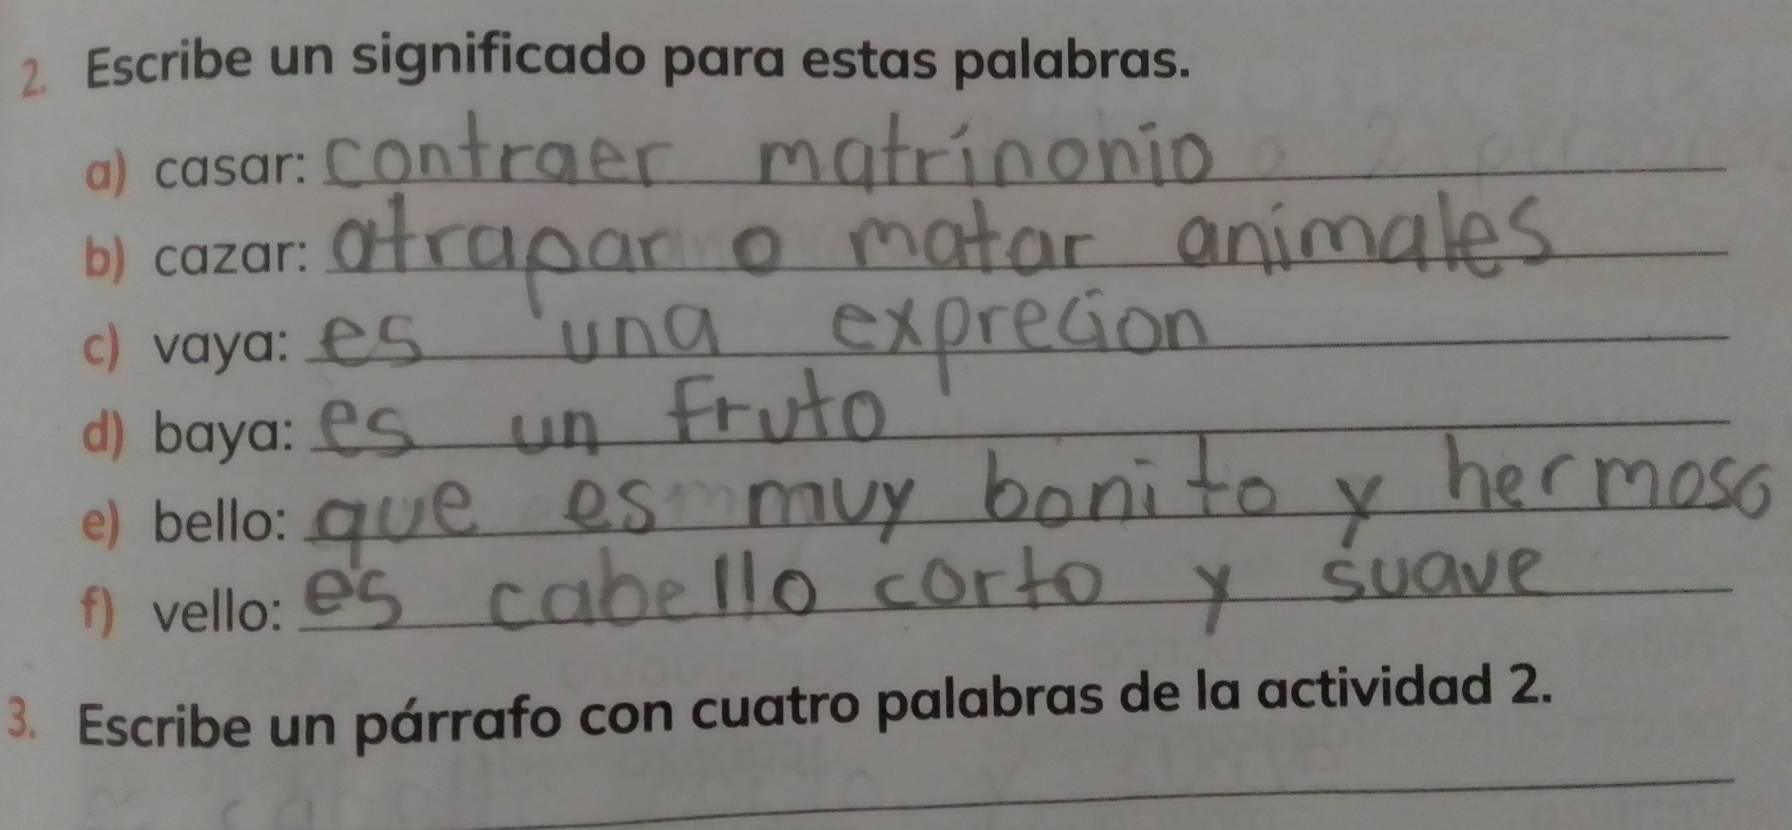 2. Escribe un significado para estas palabras.
a) casar: contraer matrinonio
b) cazar: atrapar o matar animales
c) vaya: es una exprecion
d) baya: es un fruto
e) bello: que es muy bonito y hermoso
f) vello: es cabello corto y suave
3. Escribe un párrafo con cuatro palabras de la actividad 2.